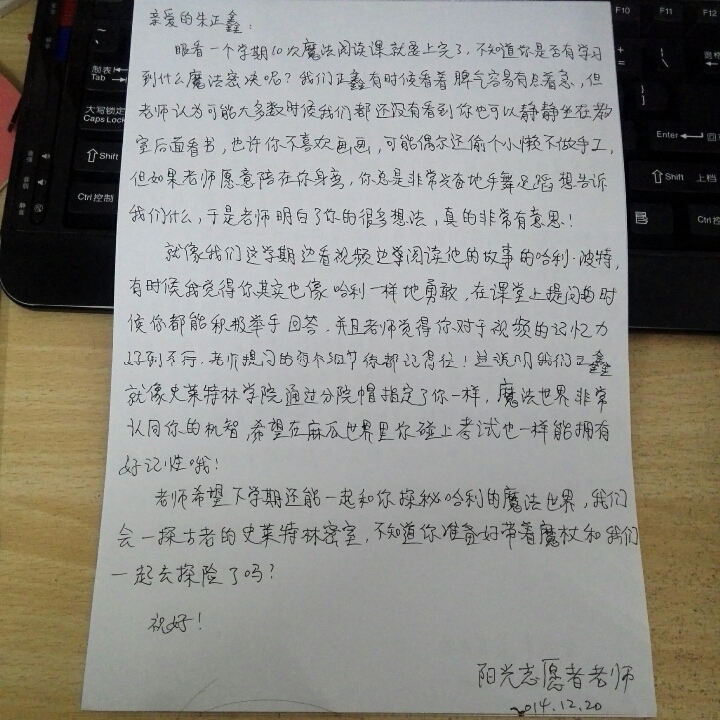 亲爱的朱正鑫：
眼看一个学期10次魔法阅读课就要上完了，不知道你是否有学习
到什么魔法密决呢？我们正鑫有时候看着脾气容易有点着急，但
老师认为可能大多数时候我们都还没有看到你也可以静静坐在教
室后面看书，也许你不喜欢画画，可能偶尔还偷个小懒不做手工，
但如果老师愿意陪在你身旁，你总是非常兴奋地手舞足蹈想告诉
我们什么，于是老师明白了你的很多想法，真的非常有意思！
就像我们这学期边看视频边学阅读他的故事的哈利·波特，
有时候我觉得你其实也像哈利一样地勇敢，在课堂上提问的时
候你都能积极举手回答．并且老师觉得你对于视频的记忆力
好到不行．老师提问的每个细节你都记得住！这说明我们正鑫
就像史莱特林学院通过分院帽指定了你一样，魔法世界非常
认同你的机智，希望在麻瓜世界里你碰上考试也一样能拥有
好记性哦！
老师希望下学期还能一起和你探秘哈利的魔法世界，我们
会一探古老的史莱特林密室，不知道你准备好带着魔杖和我们
一起去探险了吗？
祝好！
阳光志愿者老师
2014.12.20
F10
F11
F12
制表
Tab
大写锁定
Caps Lock
Shift
Ctrl控制
Enter
回车
Shift 上档
Ctrl控制